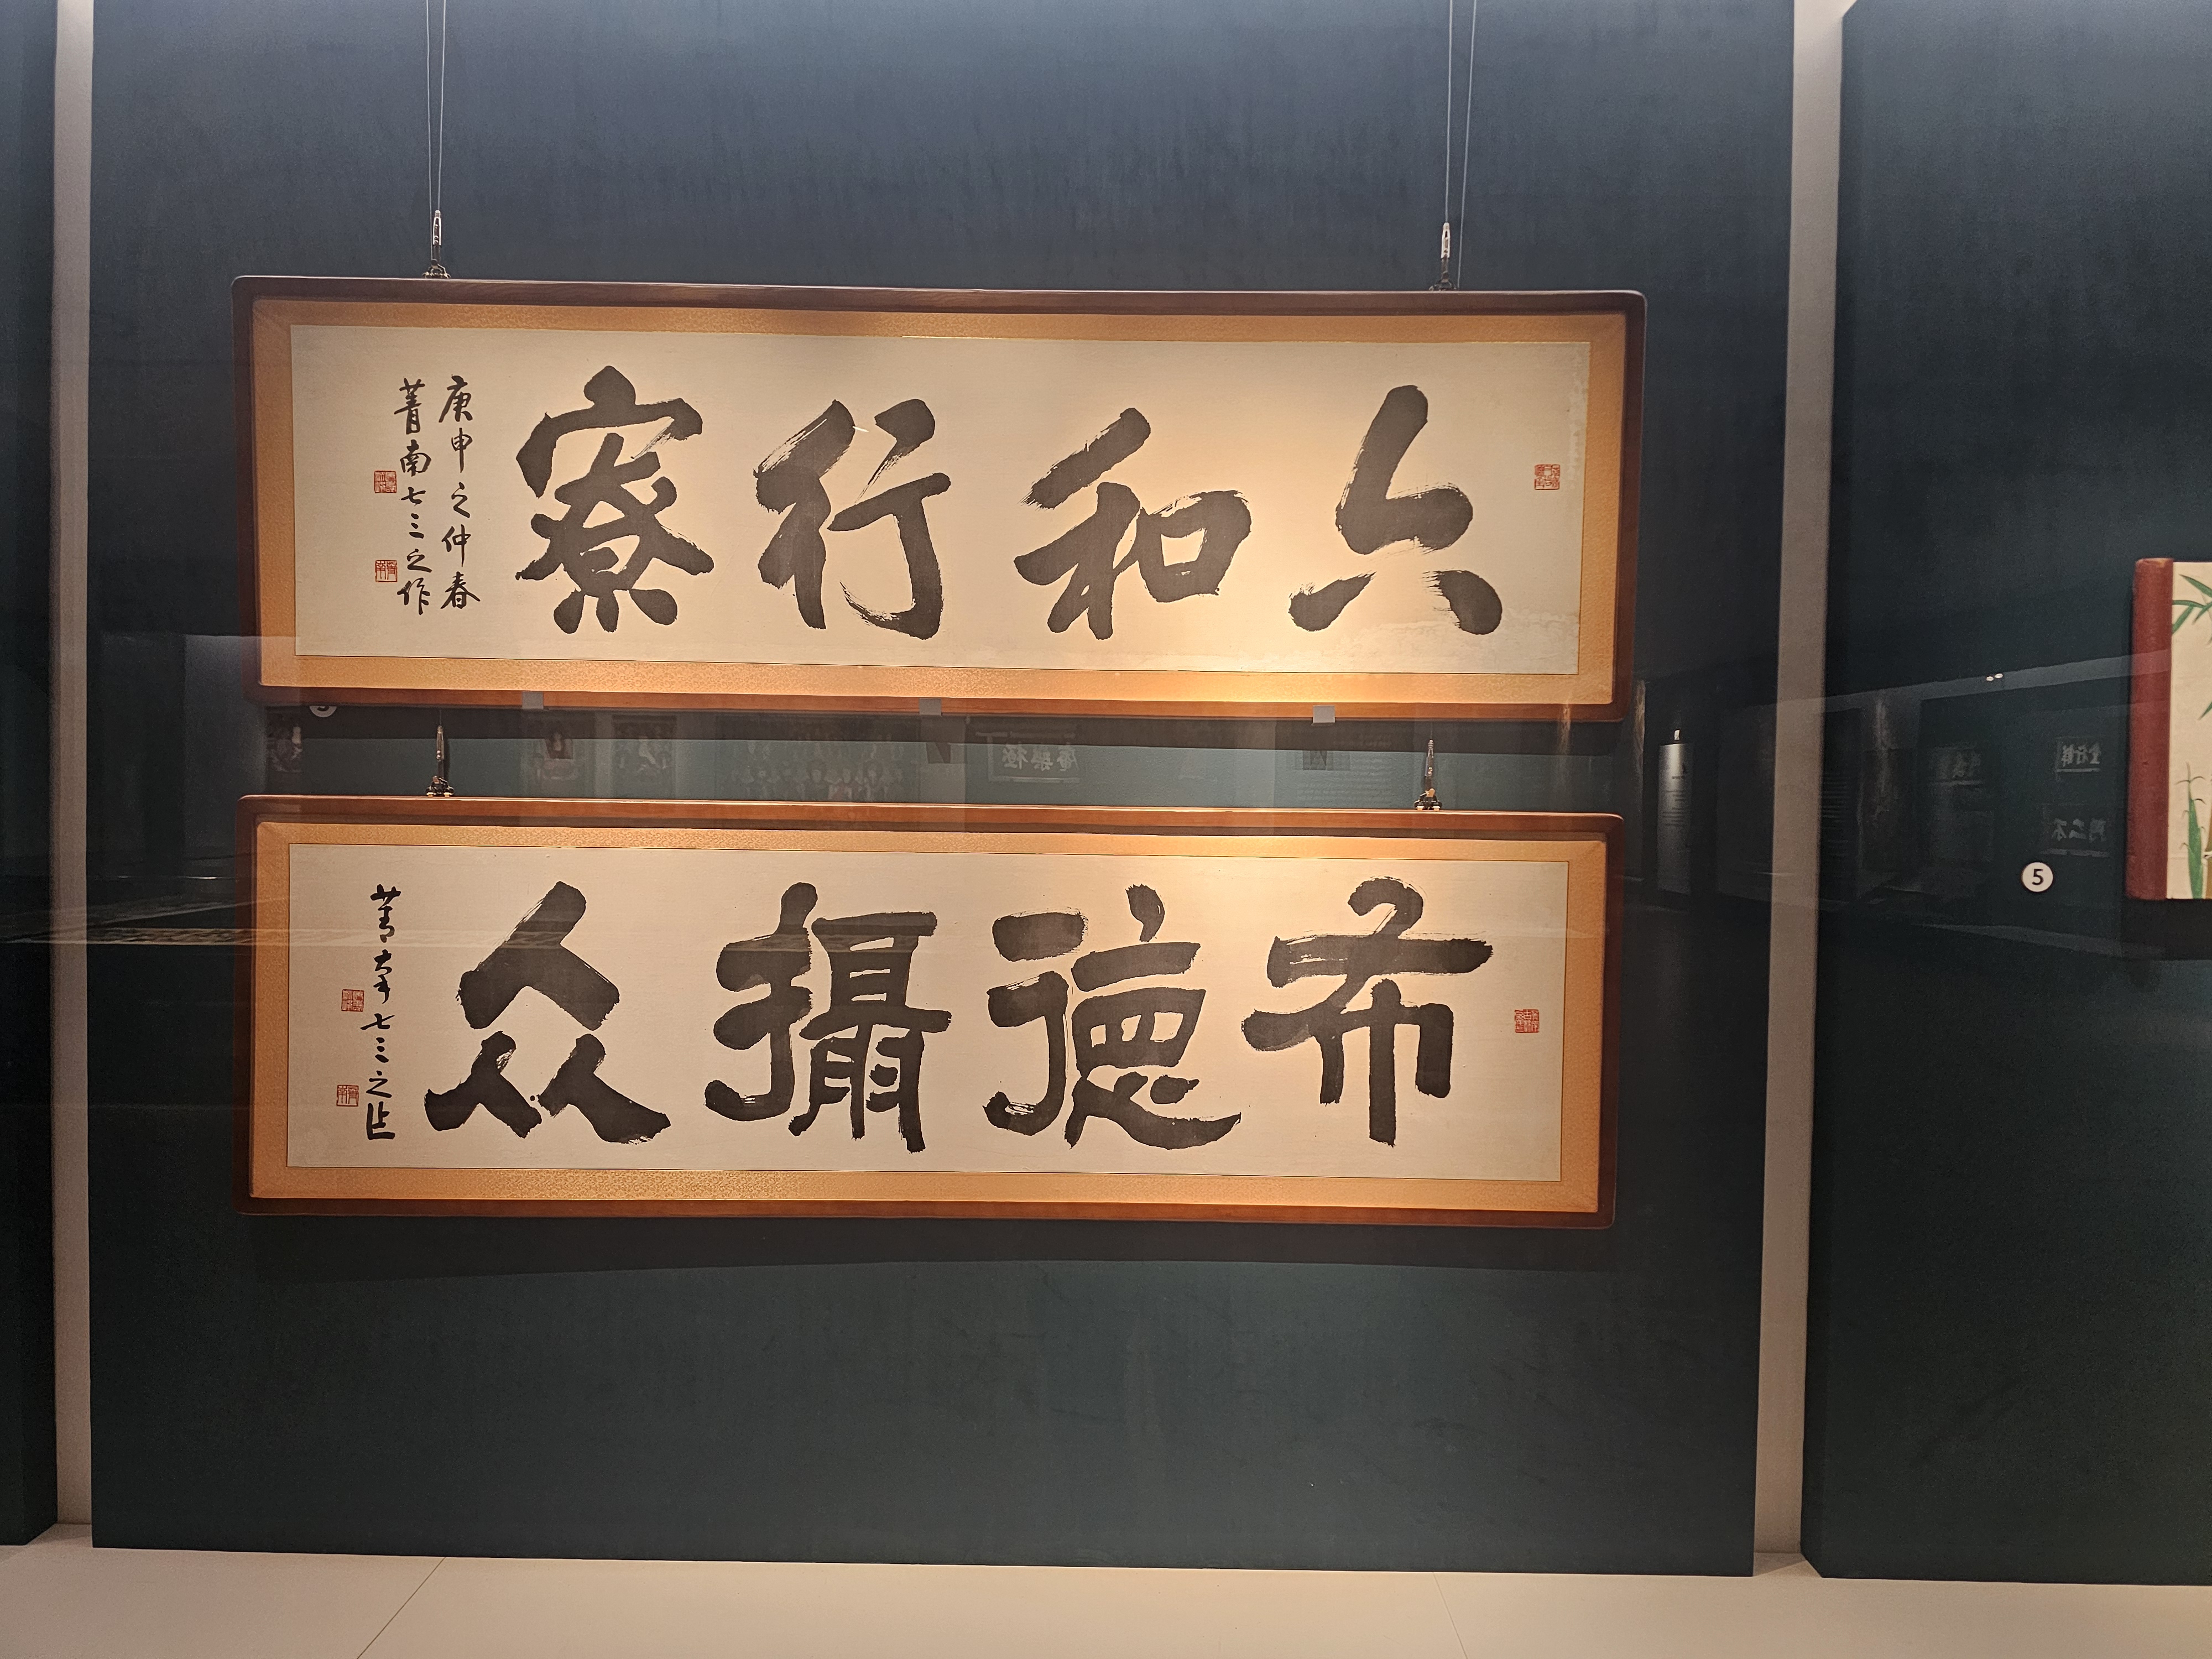 六和行寮
庚申之仲春
菁南七三之作
布德攝众
菁南七三之作
5